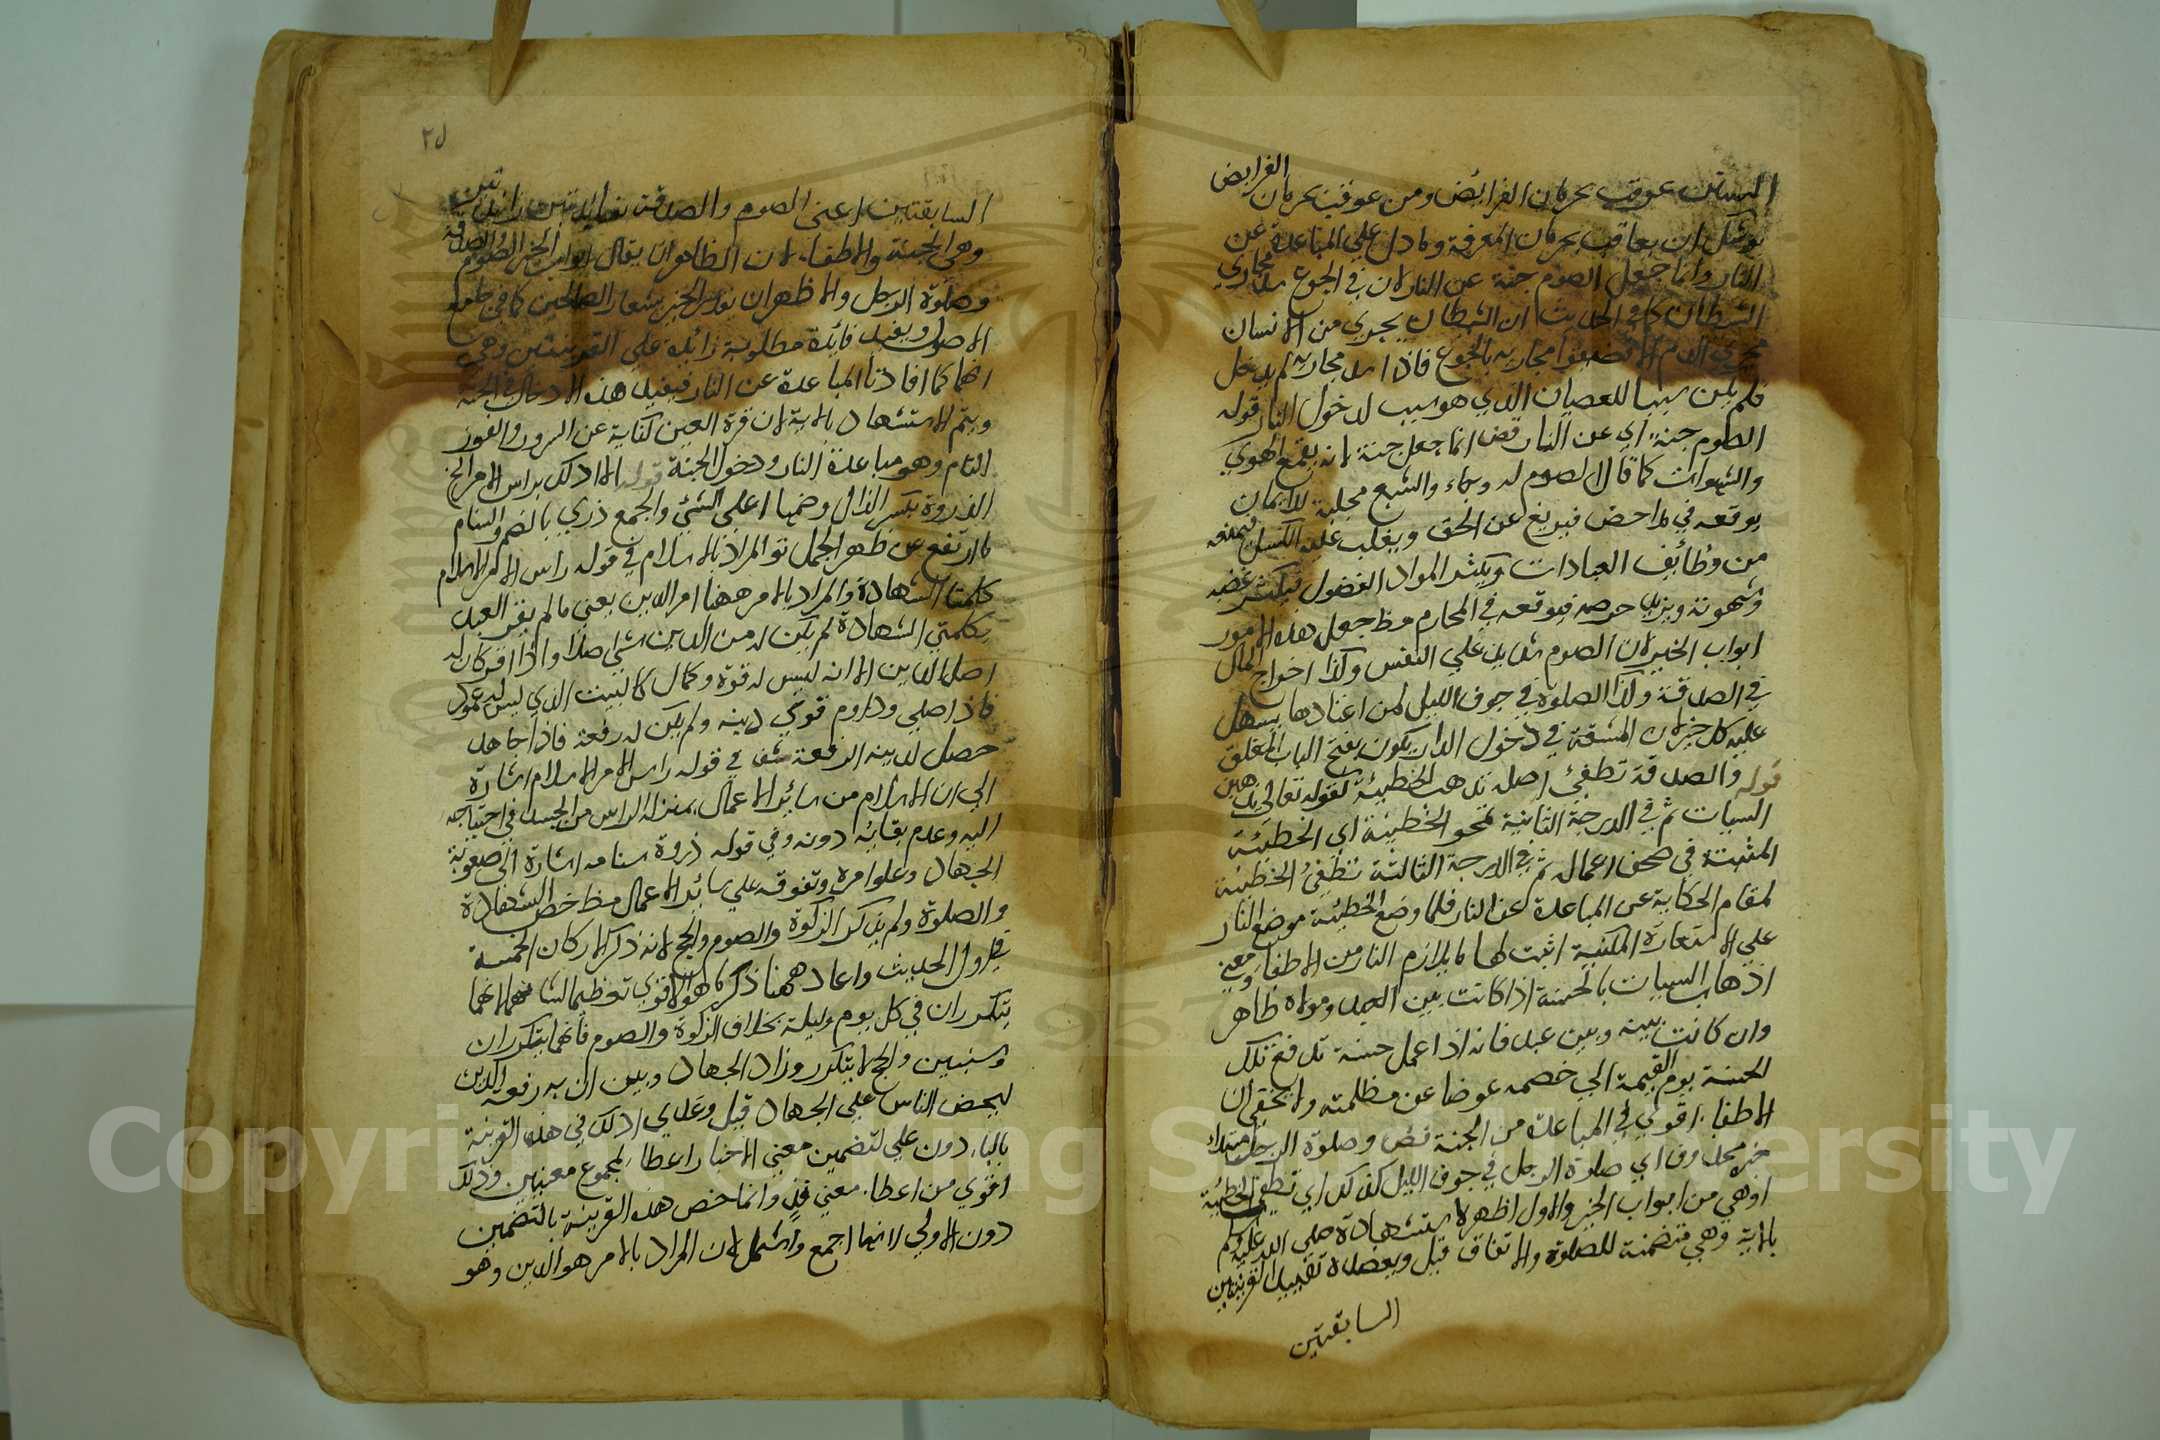 السنن عوقب بحرمان الفرائض ومن عوقب بحرمان الفرايض
يوشك ان يعاقب بحرمان المعرفة وما دل علي المباعدة عن
النار وانما جعل الصوم جنة عن النار لان في الجوع سد مجاري
الشيطان كما في الحديث ان الشيطان يجري من الانسان
مجري الدم الا فضيقوا مجاريه بالجوع فاذا سد مجاريه لم يدخل
فلم يكن سببا للعصيان الذي هو سبب لدخول النار قوله
الصوم جنة اي عن النار قض انما جعل جنة لانه يقمع الهوي
والشهوات كما قال الصوم له وجاء والشبع مجلبة للايمان
يوقعه في مداحض فيزيغ عن الحق ويغلب عليه الكسل فيمنعه
من وظائف العبادات ويكثر المواد الفضول فيكثر غضبه
وشهوته ويزيد حرصه فيوقعه في المحارم مظ جعل هذه الامور
ابواب الخير لان الصوم شديد علي النفس وكذا اخراج المال
في الصدقة وكذا الصلوة في جوف الليل فمن اعتادها يسهل
عليه كل خير لان المشقة في دخول الدار يكون بفتح الباب المغلق
قوله والصدقة تطفئ اصله تذهب الخطيئة لقوله تعالي يذهبن
السيات ثم في الدرجة الثانية تمحو الخطيئة اي الخطيئة
المثبتة في صحف اعماله ثم في الدرجة الثالثة تطفئ الخطيئة
لمقام الحكاية عن المباعدة عن النار فلما وضع الخطيئة موضع النار
علي الاستعارة المكنية اثبت لها ما يلازم النار من الاطفاء ومعني
اذهاب السيات بالحسنة اذا كانت بين العبد ومولاه ظاهر
وان كانت بينه وبين عبد فانه اذا عمل حسنة تدفع تلك
الحسنة يوم القيمة الي خصمه عوضا عن مظلمته ولا يخفي ان
الاطفاء اقوي في المباعدة من الجنة قض وصلوة الرجل مبتداء
خبره محذوف اي صلاة الرجل في جوف الليل كذلك اي تطفئ الخطيئة
او هي من ابواب الخير والاول اظهر لاستشهاده صلي الله عليه وسلم
بالاية وهي متضمنة للصلوة والانفاق قيل ويعضده تقييد القرينتين
السابقتين
٢٥
السابقتين اعني الصوم والصدقة بفائدتين زائدتين
وهي الجنة والاطفاء لان الظاهر ان يقال ابواب الخير الصوم والصدقة
وصلوة الرجل والاظهران يقدر الخبر شعار الصالحين كما في جامع
الاصول ويفيد فائدة مطلوبة زائدة علي القرينتين وهي
انهما كما افادتا المباعدة عن النار فيفيد هذه الادخال في الجنة
ويتم الاستشهاد بالاية لان قرة العين كناية عن السرور والفوز
التام وهو مباعدة النار ودخول الجنة قوله الا ادلك براس الامر الخ
الذروة بكسر الذال وضمها اعلي الشئ والجمع ذري بالضم والسنام
ما ارتفع من ظهر الجمل تو المراد بالاسلام في قوله راس الامر الاسلام
كلمتا الشهادة والمراد بالامر ههنا امر الدين يعني ما لم يقر العبد
بكلمتي الشهادة لم يكن له من الدين شئ اصلا واذا اقر كان له
اصل الدين الا انه ليس له قوة وكمال كالبيت الذي ليس له عمود
فاذا صلي وداوم قوي دينه ولم يكن له رفعة فاذا جاهد
حصل لدينه الرفعة شف في قوله راس الامر الاسلام اشارة
الي ان الاسلام من سائر الاعمال بمنزلة الراس من الجسد في احتياجه
اليه وعدم بقائه دونه وفي قوله ذروة سنامه اشارة الي صعوبة
الجهاد وعلو امره وتفوقه علي سائر الاعمال مظ خص الشهادة
والصلوة ولم يذكر الزكوة والصوم والحج لانه ذكر الاركان الخمسة
في اول الحديث واعاد ههنا ذكر ما هو الاقوي تعظيما لشانهما لانهما
يتكرران في كل يوم وليلة بخلاف الزكوة والصوم فانهما يتكرران
في سنين والحج لا يتكرر وزاد الجهاد وبين ان به رفعة الدين
لبعض الناس علي الجهاد قيل وعدي ادلك في هذه القرينة
بالباء دون علي لتضمين معني الاخبار اعطاء لمجموع معنيين وذلك
اقوي من اعطاء معني فذ وانما خص هذه القرينة بالتضمين
دون الاولي لانها اجمع واشمل لان المراد بالامر هو الدين وهو
Copyright © King Saud University